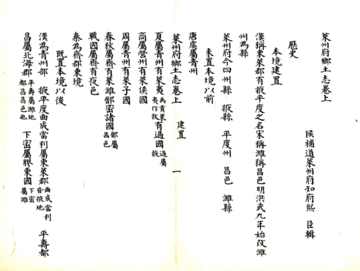 萊州府鄉土志卷上
候補道萊州府知府熙 臣輯
歷史
本境建置
漢稱東萊郡有掖平度之名宋稱濰稱昌邑明洪武九年始改濰
州為縣
萊州府今四州縣 掖縣 平度州 昌邑 濰縣
未置本境以前
唐虞屬青州
萊州府鄉土志卷上 建置 一
夏屬青州有萊夷
商屬營州有萊侯國
周屬青州有萊子國
春秋屬齊有萊濰郡密諸國
戰國屬齊有夜邑
秦為齊郡東境
既置本境以後
漢為青州部 掖平度曲成當利屬東萊郡 平壽都
昌屬北海郡 下密屬膠東國